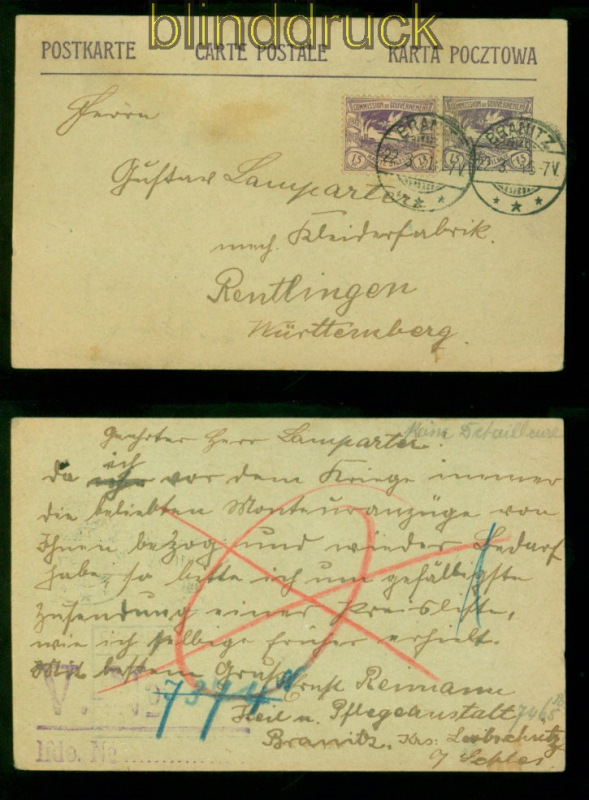 blinddruck
POSTKARTE CARTE POSTALE KARTA POCZTOWA
COMMISSION DE GOUVERNEMENT
COMMISSION DE GOUVERNEMENT
15 15
15 15
BRANITZ
22.3.
7V.
BRANITZ
22.3.
7V.
Herrn
Gustav Lamparter
mech. Kleiderfabrik.
Reutlingen
Württemberg.
Keine Detailleure
Geehrter Herr Lamparter.
Da ich vor dem Kriege immer
die beliebten Monteuranzüge von
Ihnen bezog und wieder Bedarf
habe, so bitte ich um gefälligste
Zusendung einer Preisliste,
wie ich selbige früher erhielt.
Mit bestem Gruß Ernst Reimann
Heil u. Pflegeanstalt
Branitz, Krs: Leobschütz
7394
7465
lfde. №